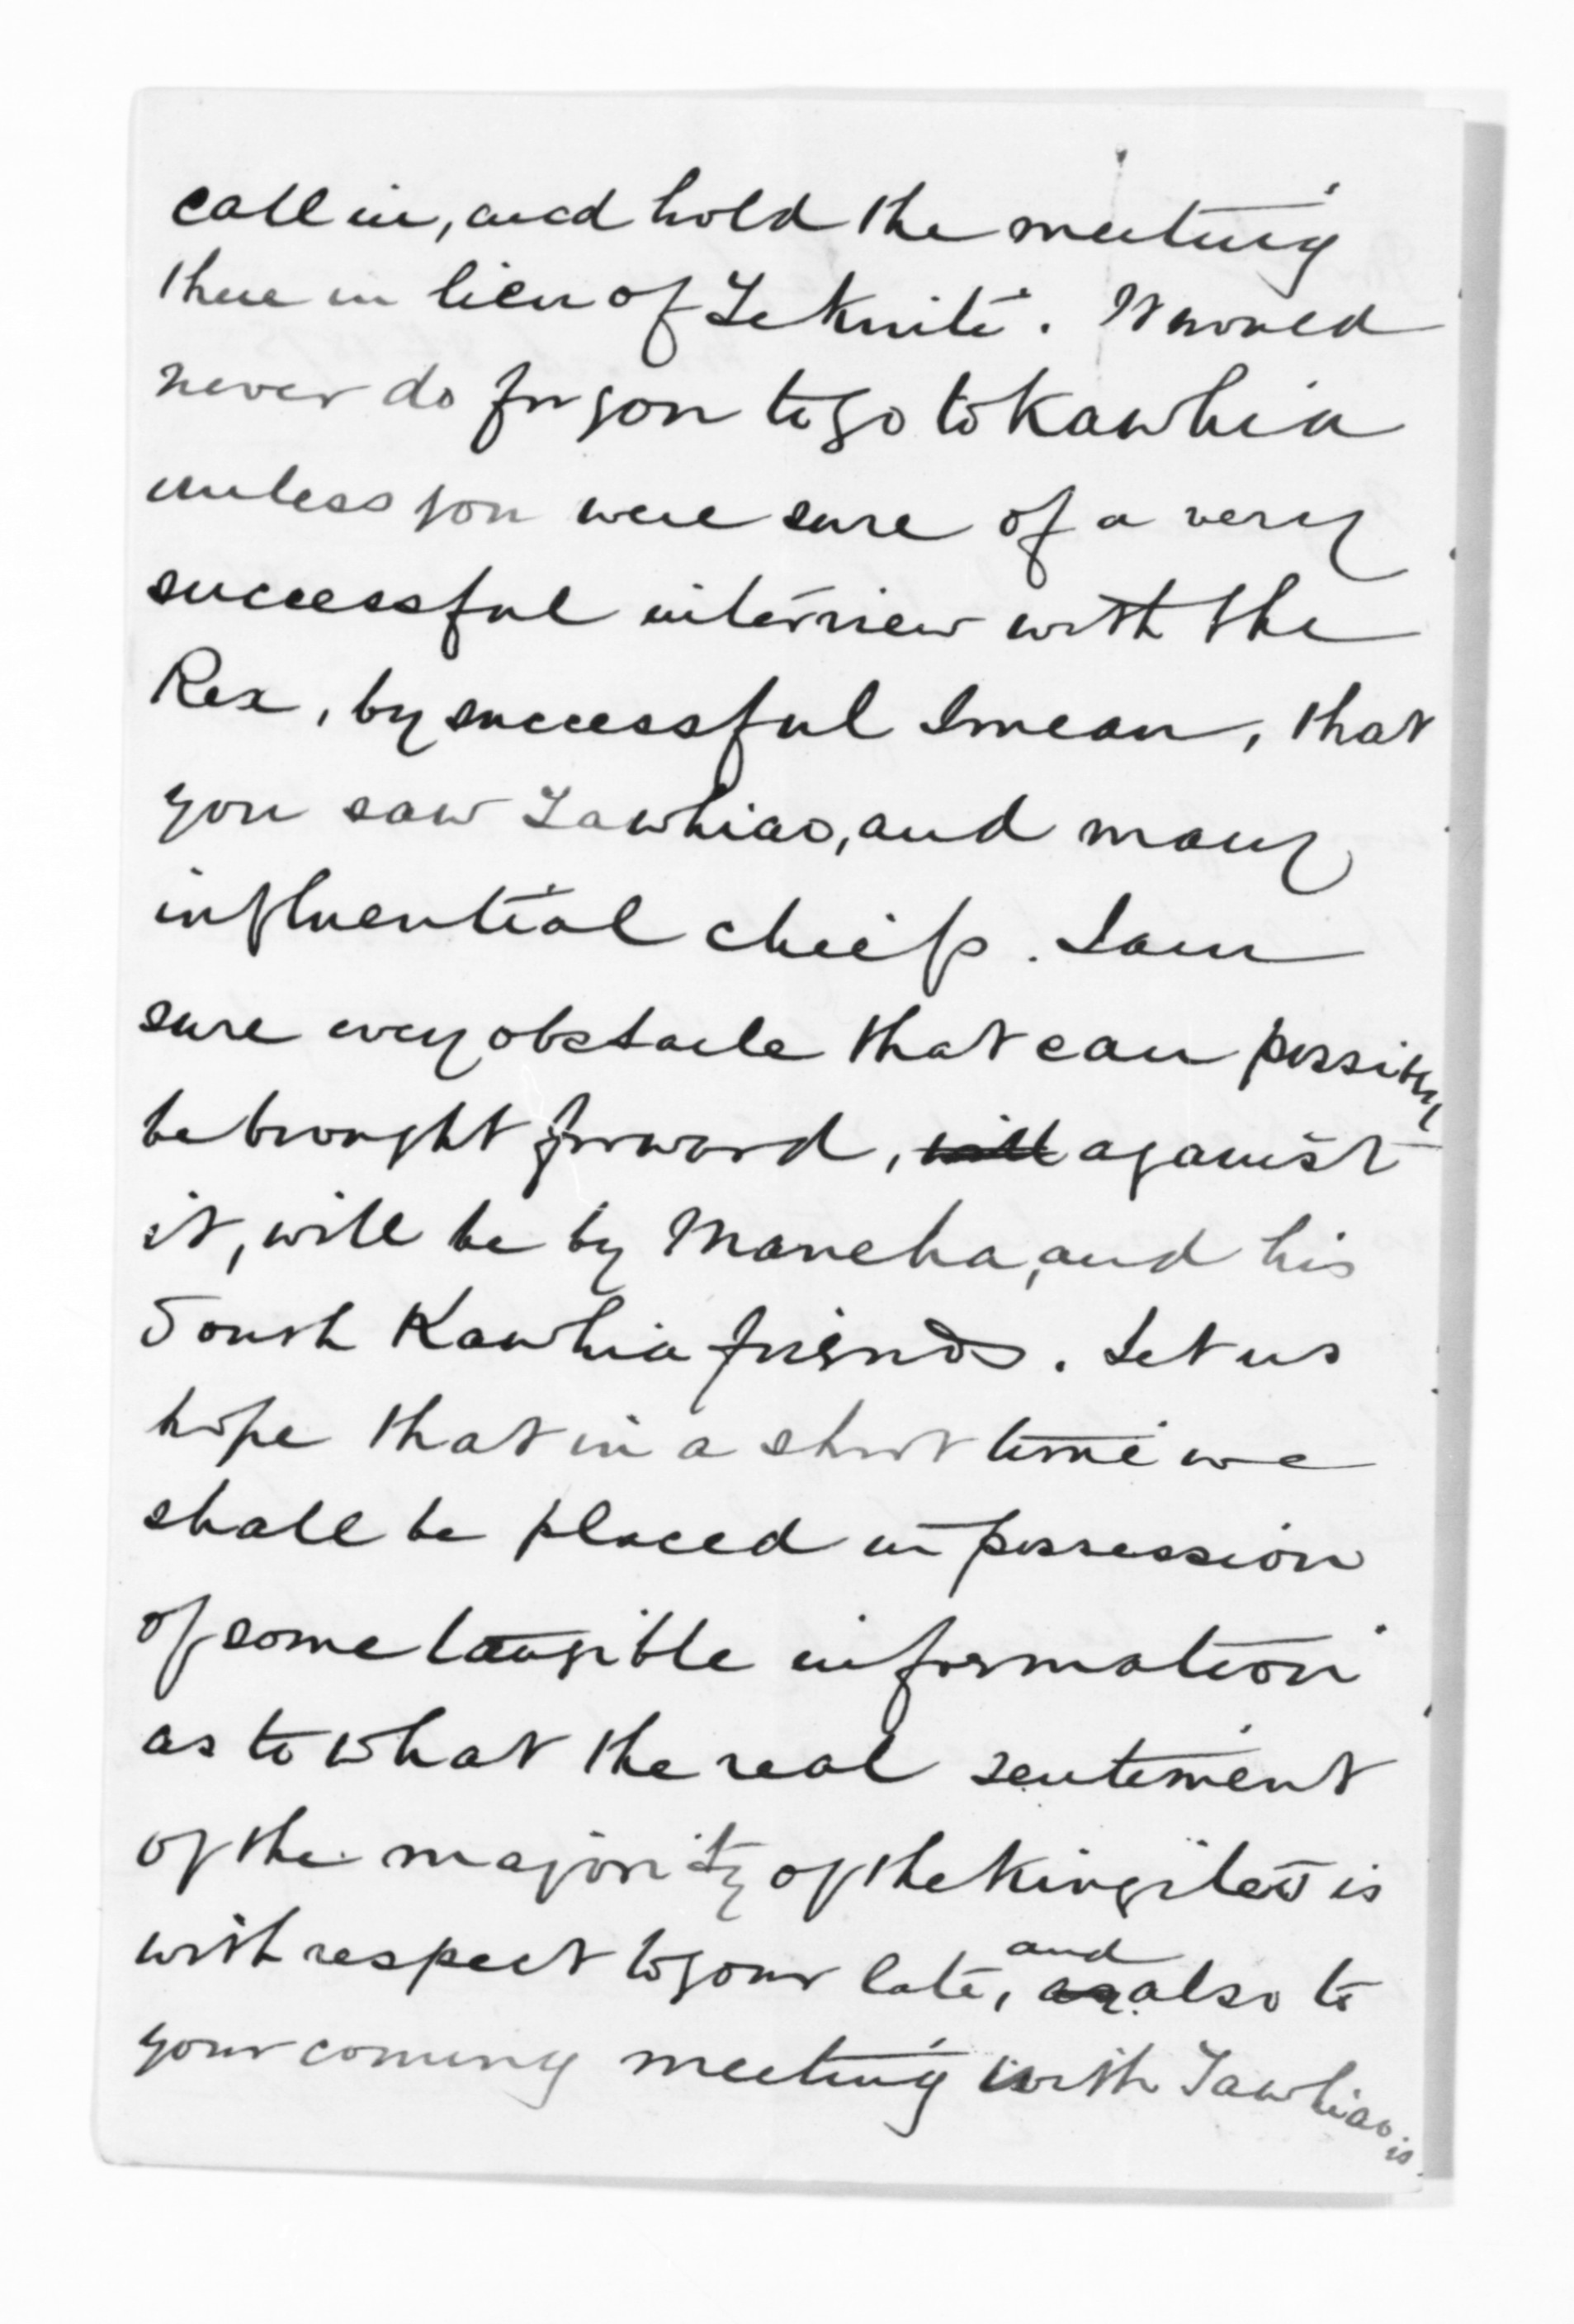 call in, and hold the meeting
there in lieu of Te Kuiti. It would
never do for you to go to Kawhia
unless you were sure of a very
successful interview with the
Rex, by successful I mean, that
you saw Tawhiao, and many
influential cheifs. I am
sure every obstacle that can possibly
be brought forward, will against
it, will be by Maneha, and his
South Kawhia friends. Let us
hope that in a short time we
shall be placed in possession
of some tangible information
as to what the real sentiment
of the majority of the Kingites is
with respect to your late, and also to
your coming meeting with Tawhiao is.